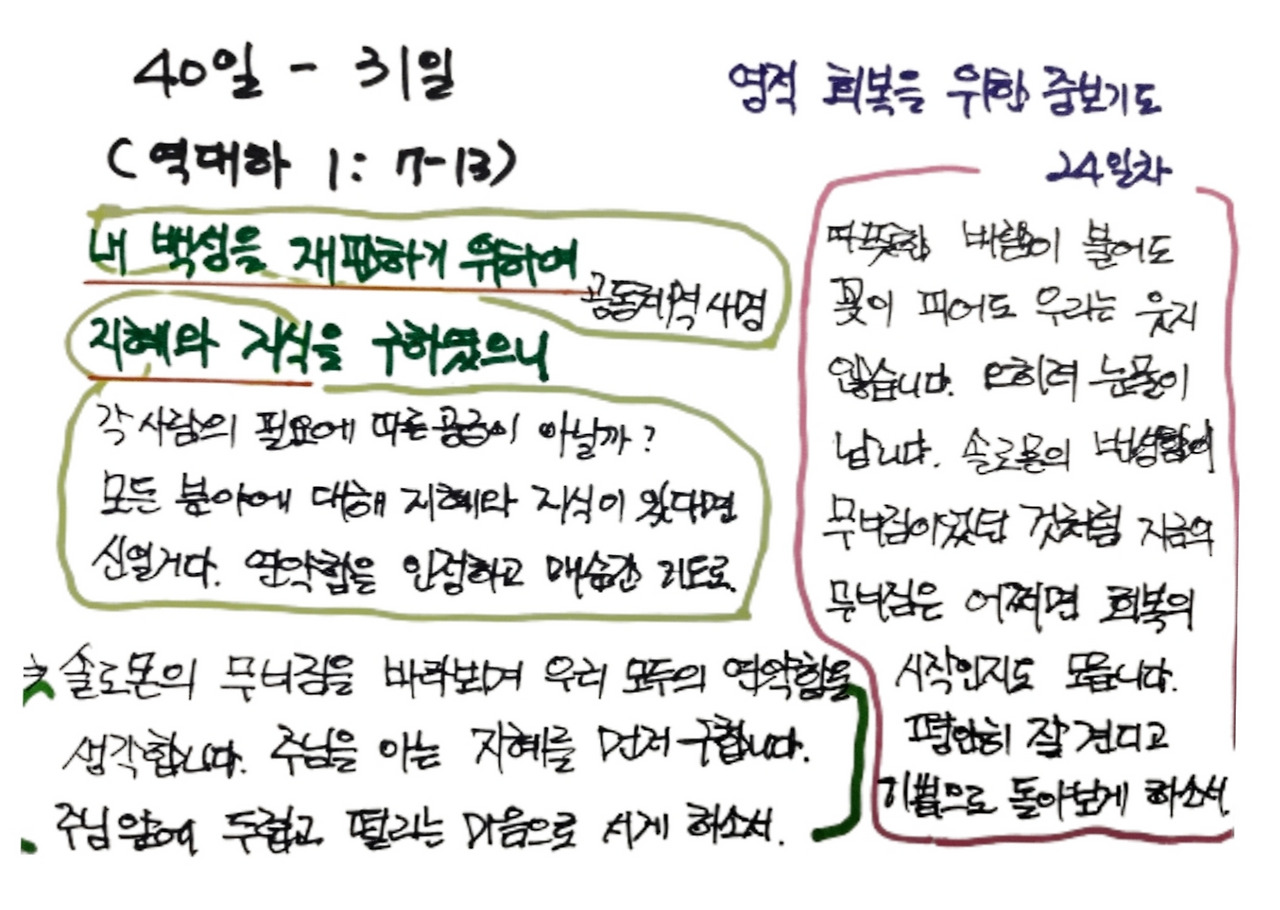 40일 - 31일
(역대하 1: 7-13)
내 백성을 재판하기 위하여
공동체적 사명
지혜와 지식을 구하였으니
각 사람의 필요에 따른 공급이 아닐까?
모든 분야에 대해 지혜와 지식이 있다면
신일거다. 연약함을 인정하고 매순간 기도로.
솔로몬의 무너짐을 바라보며 우리 모두의 연약함을
생각합니다. 주님을 아는 지혜를 먼저 구합니다.
주님 앞에 두렵고 떨리는 마음으로 서게 하소서.
영적 회복을 위한 중보기도
24일차
따뜻한 바람이 불어도
꽃이 피어도 우리는 웃지
않습니다. 오히려 눈물이
납니다. 솔로몬의 번성함이
무너짐이었던 것처럼 지금의
무너짐은 어쩌면 회복의
시작인지도 모릅니다.
평안히 잘 견디고
기쁨으로 돌아보게 하소서.